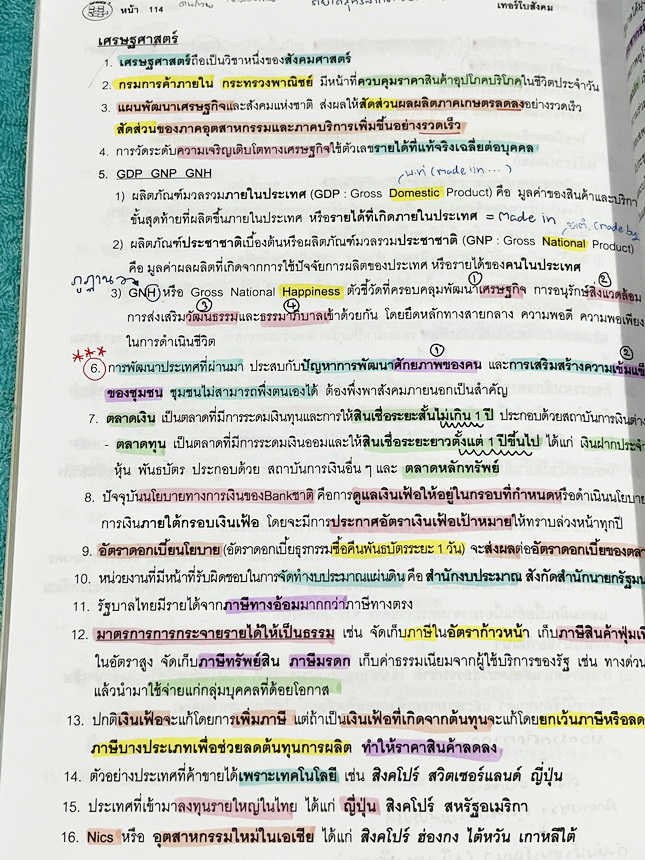 หน้า 114
เทอร์โบสังคม
เศรษฐศาสตร์
1. เศรษฐศาสตร์ถือเป็นวิชาหนึ่งของสังคมศาสตร์
2. กรมการค้าภายใน กระทรวงพาณิชย์ มีหน้าที่ควบคุมราคาสินค้าอุปโภคบริโภคในชีวิตประจำวัน
3. แผนพัฒนาเศรษฐกิจและสังคมแห่งชาติ ส่งผลให้สัดส่วนผลผลิตภาคเกษตรลดลงอย่างรวดเร็ว
สัดส่วนของภาคอุตสาหกรรมและภาคบริการเพิ่มขึ้นอย่างรวดเร็ว
4. การวัดระดับความเจริญเติบโตทางเศรษฐกิจใช้ตัวเลขรายได้ที่แท้จริงเฉลี่ยต่อบุคคล
5. GDP GNP GNH
(made in ...)
1) ผลิตภัณฑ์มวลรวมภายในประเทศ (GDP : Gross Domestic Product) คือ มูลค่าของสินค้าและบริกา
ขั้นสุดท้ายที่ผลิตขึ้นภายในประเทศ หรือรายได้ที่เกิดภายในประเทศ = Made in
(made by
2) ผลิตภัณฑ์ประชาชาติเบื้องต้นหรือผลิตภัณฑ์มวลรวมประชาชาติ (GNP : Gross National Product)
คือ มูลค่าผลผลิตที่เกิดจากการใช้ปัจจัยการผลิตของประเทศ หรือรายได้ของคนในประเทศ
ภูฏาน
① ②
3) GNH หรือ Gross National Happiness ตัวชี้วัดที่ครอบคลุมพัฒนาเศรษฐกิจ การอนุรักษ์สิ่งแวดล้อม
③ ④
การส่งเสริมวัฒนธรรมและธรรมาภิบาลเข้าด้วยกัน โดยยึดหลักทางสายกลาง ความพอดี ความพอเพียง
ในการดำเนินชีวิต
*** ① ②
6. การพัฒนาประเทศที่ผ่านมา ประสบกับปัญหาการพัฒนาศักยภาพของคน และการเสริมสร้างความเข้มแข็
ของชุมชน ชุมชนไม่สามารถพึ่งตนเองได้ ต้องพึ่งพาสังคมภายนอกเป็นสำคัญ
7. ตลาดเงิน เป็นตลาดที่มีการระดมเงินทุนและการให้สินเชื่อระยะสั้นไม่เกิน 1 ปี ประกอบด้วยสถาบันการเงินต่าง
- ตลาดทุน เป็นตลาดที่มีการระดมเงินออมและให้สินเชื่อระยะยาวตั้งแต่ 1 ปีขึ้นไป ได้แก่ เงินฝากประจำ
หุ้น พันธบัตร ประกอบด้วย สถาบันการเงินอื่น ๆ และ ตลาดหลักทรัพย์
8. ปัจจุบันนโยบายทางการเงินของBankชาติ คือการดูแลเงินเฟ้อให้อยู่ในกรอบที่กำหนดหรือดำเนินนโยบาย
การเงินภายใต้กรอบเงินเฟ้อ โดยจะมีการประกาศอัตราเงินเฟ้อเป้าหมายให้ทราบล่วงหน้าทุกปี
9. อัตราดอกเบี้ยนโยบาย (อัตราดอกเบี้ยธุรกรรมซื้อคืนพันธบัตรระยะ 1 วัน) จะส่งผลต่ออัตราดอกเบี้ยของตลา
10. หน่วยงานที่มีหน้าที่รับผิดชอบในการจัดทำงบประมาณแผ่นดิน คือ สำนักงบประมาณ สังกัดสำนักนายกรัฐมน
11. รัฐบาลไทยมีรายได้จากภาษีทางอ้อมมากกว่าภาษีทางตรง
12. มาตรการการกระจายรายได้ให้เป็นธรรม เช่น จัดเก็บภาษีในอัตราก้าวหน้า เก็บภาษีสินค้าฟุ่มเฟื
ในอัตราสูง จัดเก็บภาษีทรัพย์สิน ภาษีมรดก เก็บค่าธรรมเนียมจากผู้ใช้บริการของรัฐ เช่น ทางด่วน
แล้วนำมาใช้จ่ายแก่กลุ่มบุคคลที่ด้อยโอกาส
13. ปกติเงินเฟ้อจะแก้โดยการเพิ่มภาษี แต่ถ้าเป็นเงินเฟ้อที่เกิดจากต้นทุนจะแก้โดยยกเว้นภาษีหรือลด
ภาษีบางประเภทเพื่อช่วยลดต้นทุนการผลิต ทำให้ราคาสินค้าลดลง
14. ตัวอย่างประเทศที่ค้าขายได้เพราะเทคโนโลยี เช่น สิงคโปร์ สวิตเซอร์แลนด์ ญี่ปุ่น
15. ประเทศที่เข้ามาลงทุนรายใหญ่ในไทย ได้แก่ ญี่ปุ่น สิงคโปร์ สหรัฐอเมริกา
16. Nics หรือ อุตสาหกรรมใหม่ในเอเชีย ได้แก่ สิงคโปร์ ฮ่องกง ไต้หวัน เกาหลีใต้